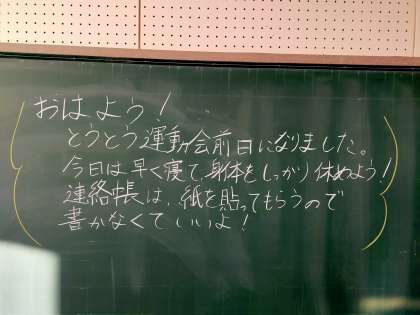 おはよう！
とうとう運動会前日になりました。
今日は早く寝て、身体をしっかり休めよう！
連絡帳は、紙を貼ってもらうので
書かなくていいよ！